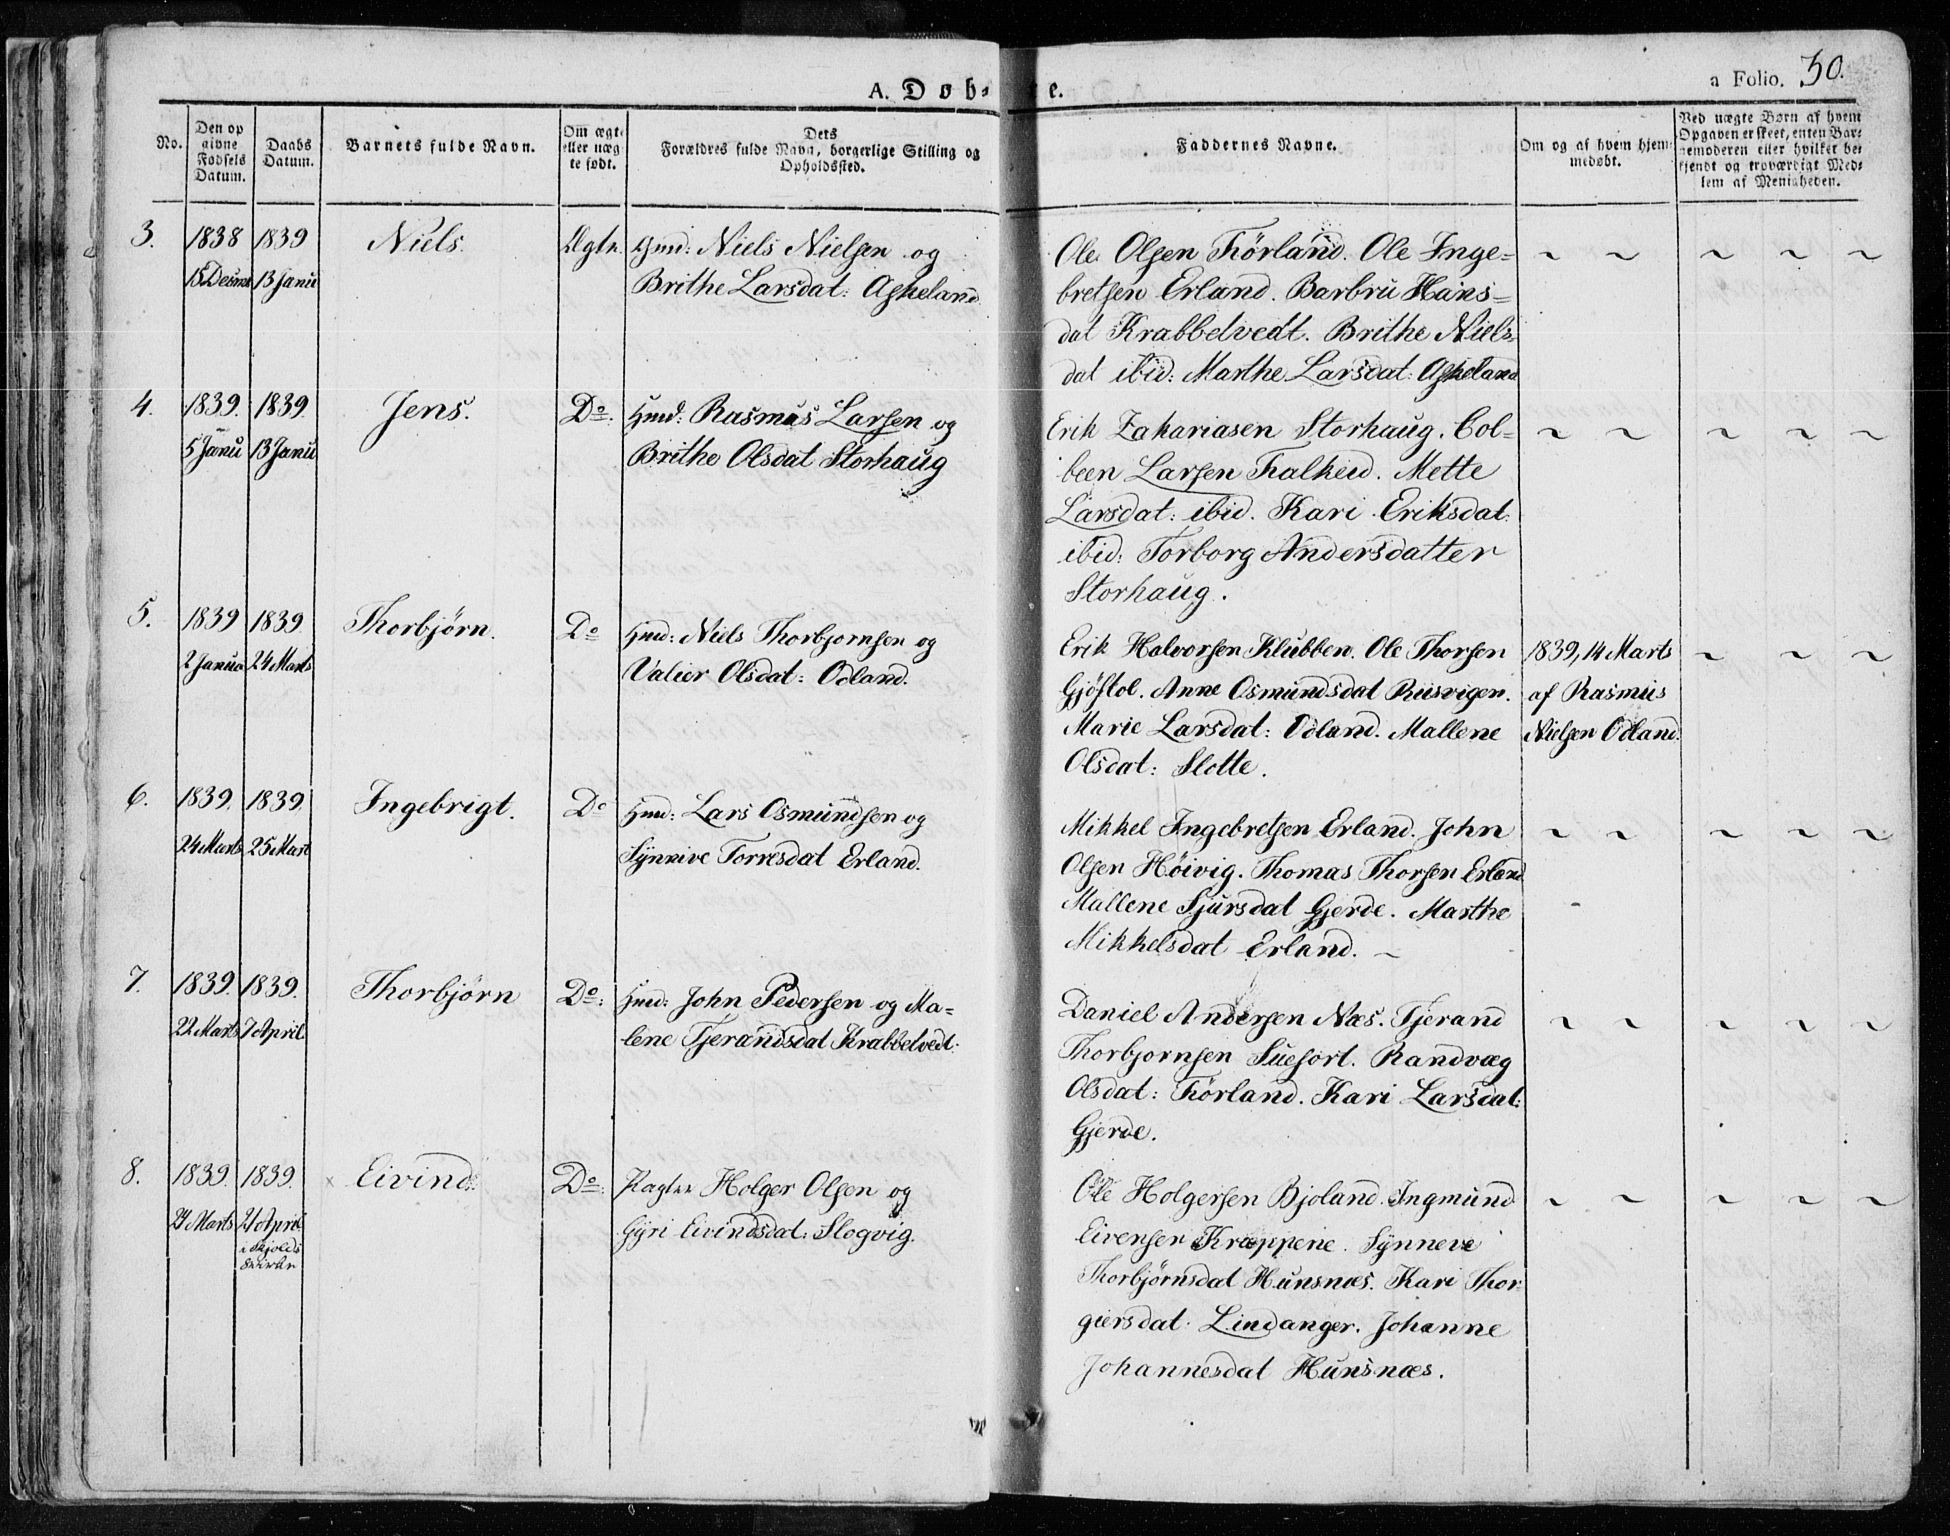 A. Døb-
te.
a Folio. 50.
No.
Den op
givne
Fødsels
Datum.
Daabs
Datum.
Barnets fulde Navn.
Om ægte
eller uæg
te født.
Dets
Forældres fulde Navn, borgerlige Stilling og
Opholdssted.
Faddernes Navne.
Om og af hvem hjem-
medøbt.
Ved uægte Børn af hvem
Opgaven er skeet, enten Bar-
nemoderen eller hvilket be-
kjendt og troværdigt Med-
lem af Menigheden.
3.
1838
15 Decmr
1839
13 Janu
Niels.
Ægte.
Gmd: Niels Nielsen og
Brithe Larsdat: Askeland
Ole Olsen Førland. Ole Inge=
bretsen Erland. Barbru Hans=
dat Krabbetvedt. Brithe Niels=
dat ibid: Marthe Larsdat: Askeland
~ ~ ~ ~ ~
4.
1839.
5 Janu
1839.
13 Janu
Jens.
Do.
Hmd: Rasmus Larsen og
Brithe Olsdat Storhaug
Erik Zakariasen Storhaug. Col=
been Larsen Falkeid. Mette
Larsdat: ibid. Kari Eriksdat:
ibid: Torborg Andersdatter
Storhaug.
~ ~ ~ ~ ~
5.
1839
2 Janua
1839
24 Marts
Thorbjörn.
Do
Hmd: Niels Thorbjornsen og
Valier Olsdat: Odland.
Erik Halvorsen Klubben. Ole Thorsen
Gjöstol. Anne Osmundsdat Riisvigen.
Marie Larsdat: Odland. Mallene
Olsdat: Slotte.
1839, 14 Marts
af Rasmus
Nielsen Odland.
~ ~ ~
6.
1839.
24 Marts
1839.
25 Mart
Ingebrigt.
Do
Hmd: Lars Osmundsen og
Synnive Torresdat Erland.
Mikkel Ingebretsen Erland. John
Olsen Höivig. Thomas Thorsen Erland
Mallene Sjursdat Gjerde. Marthe
Mikkelsdat Erland. —
~ ~ ~ ~ ~
7.
1839.
22 Marts
1839.
7 April
Thorbjørn
Do:
Hmd: John Pedersen og Ma=
lene Tjerandsdat Krabbetvedt:
Daniel Andersen Næs. Tjerand
Thorbjornsen Suefort. Randvæg
Olsdat: Førland. Kari Larsdat:
Gjerde.
~ ~ ~ ~ ~
8.
1839.
24 Marts
1839.
21 April
i Skjolds
Kirke
× Eivind.
Do:
Pagter Holger Olsen og
Gyri Eivindsdat: Slogvig.
Ole Holgersen Bjoland. Ingmund
Eivensen Kræppene. Synneve
Thorbjørnsdat Hunsnæs. Kari Thor=
giersdat: Lindanger. Johanne
Johannesdat Hunsnæs.
~ ~ ~ ~ ~